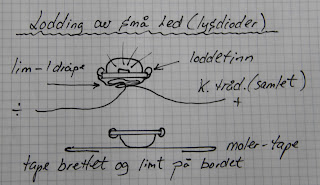 Lodding av små Led (lysdioder)
loddetinn
lim-1 dråpe
K. tråd. (samlet)
÷
+
maler-tape
tape brettet og limt på bordet